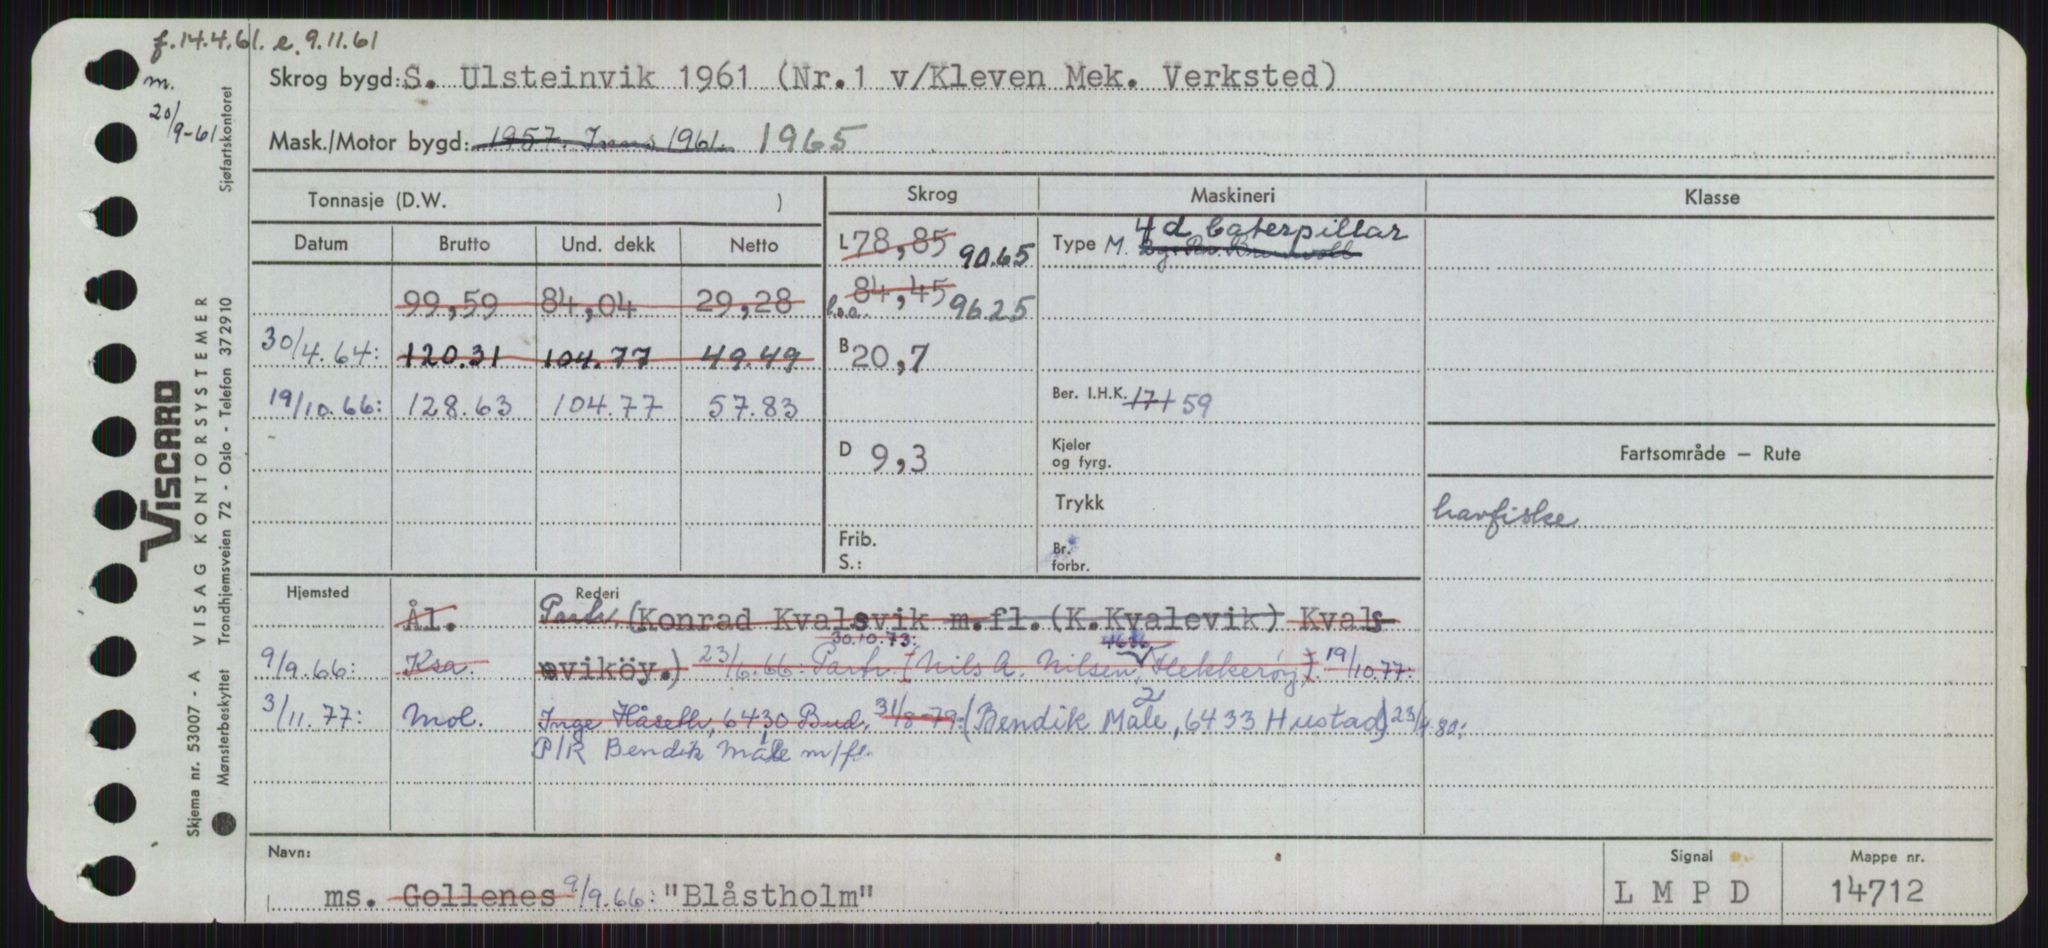 f. 14.4.61. e. 9.11.61
m.
20/9-61
Skrog bygd: S. Ulsteinvik 1961 (Nr.1 v/Kleven Mek. Verksted)
Mask./Motor bygd: 1957. 1961. 1965
Tonnasje (D.W. )
Skrog
Maskineri
Klasse
Datum Brutto Und. dekk Netto
L 78,85 90.65
Type M. 4 d Caterpillar
99,59 84,04 29,28
l.o.a. 84,45 96.25
30/4.64: 120.31 104.77 49.49
B 20,7
19/10.66: 128.63 104.77 57.83
Ber. I.H.K. 171 59
D 9,3
Kjeler
og fyrg.
Fartsområde – Rute
Trykk
havfiske
Frib.
S.:
Br.
forbr.
Hjemsted
Rederi
Ål. Partr (Konrad Kvalsvik m.fl. (K.Kvalevik) Kvals
30.10.73: 4686
9/9.66: Ksa. sviköy.) 23/6.66: Partr. (Nils A. Nilsen, Hekkerøy). 19/10.77:
3/11.77: Mol. Inge Håseth, 6430 Bud. 31/8-79: (Bendik Male, 6433 Hustad) 23/4.80:
P/R Bendik Male m/fl.
Navn:
ms. Gollenes 9/9.66: "Blåstholm"
Signal
L M P D
Mappe nr.
14712
VISCARD
Skjema nr. 53007 - A VISAG KONTORSYSTEMER
Mønsterbeskyttet Trondhjemsveien 72 - Oslo - Telefon 372910
Sjøfartskontoret